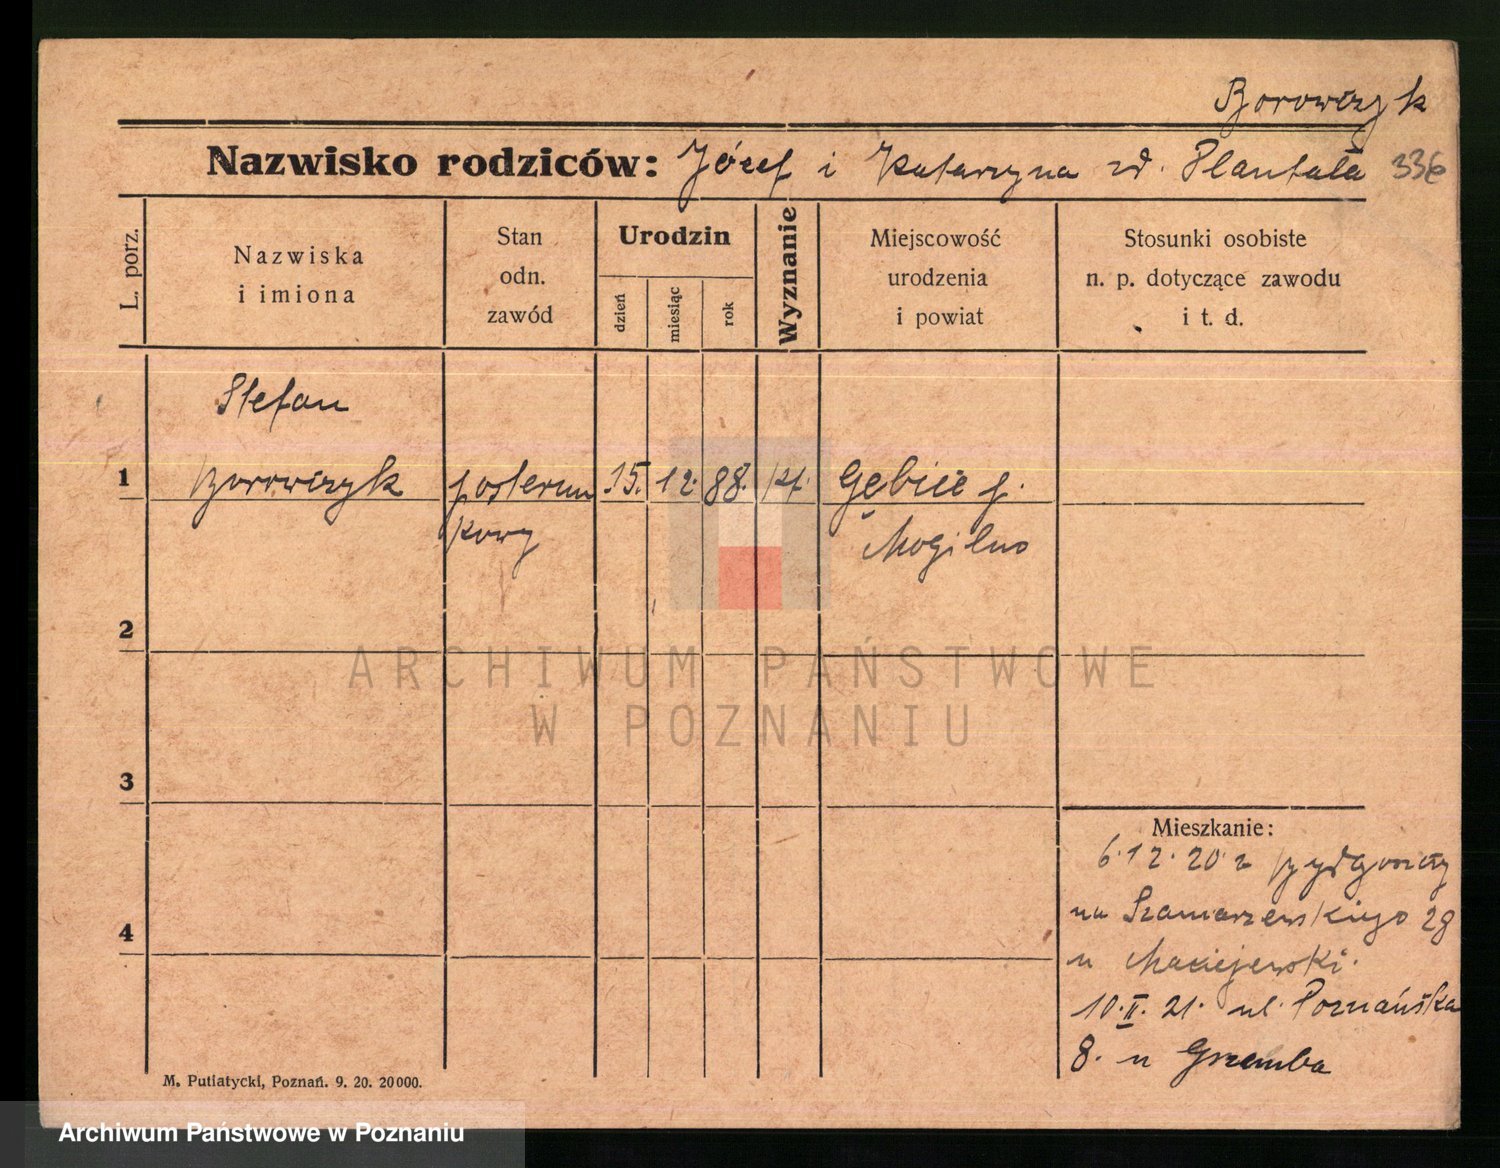 Borowczyk
Nazwisko rodziców: Józef i Katarzyna zd. Plantala 336
L. porz.
Nazwiska
i imiona
Stan
odn.
zawód
Urodzin
dzień
miesiąc
rok
Wyznanie
Miejscowość
urodzenia
i powiat
Stosunki osobiste
n. p. dotyczące zawodu
i t. d.
Stefan
1 Borowczyk posterun 15. 12. 88. kt. Gębice p.
kowy Mogilno
2
3
4
Mieszkanie:
6.12.20 z Bydgoszczy
na Szamarzewskiego 28
u Maciejewski.
10.II.21. ul. Poznańska
8. u Grzemba
M. Putiatycki, Poznań. 9. 20. 20000.
ARCHIWUM PAŃSTWOWE
W POZNANIU
Archiwum Państwowe w Poznaniu